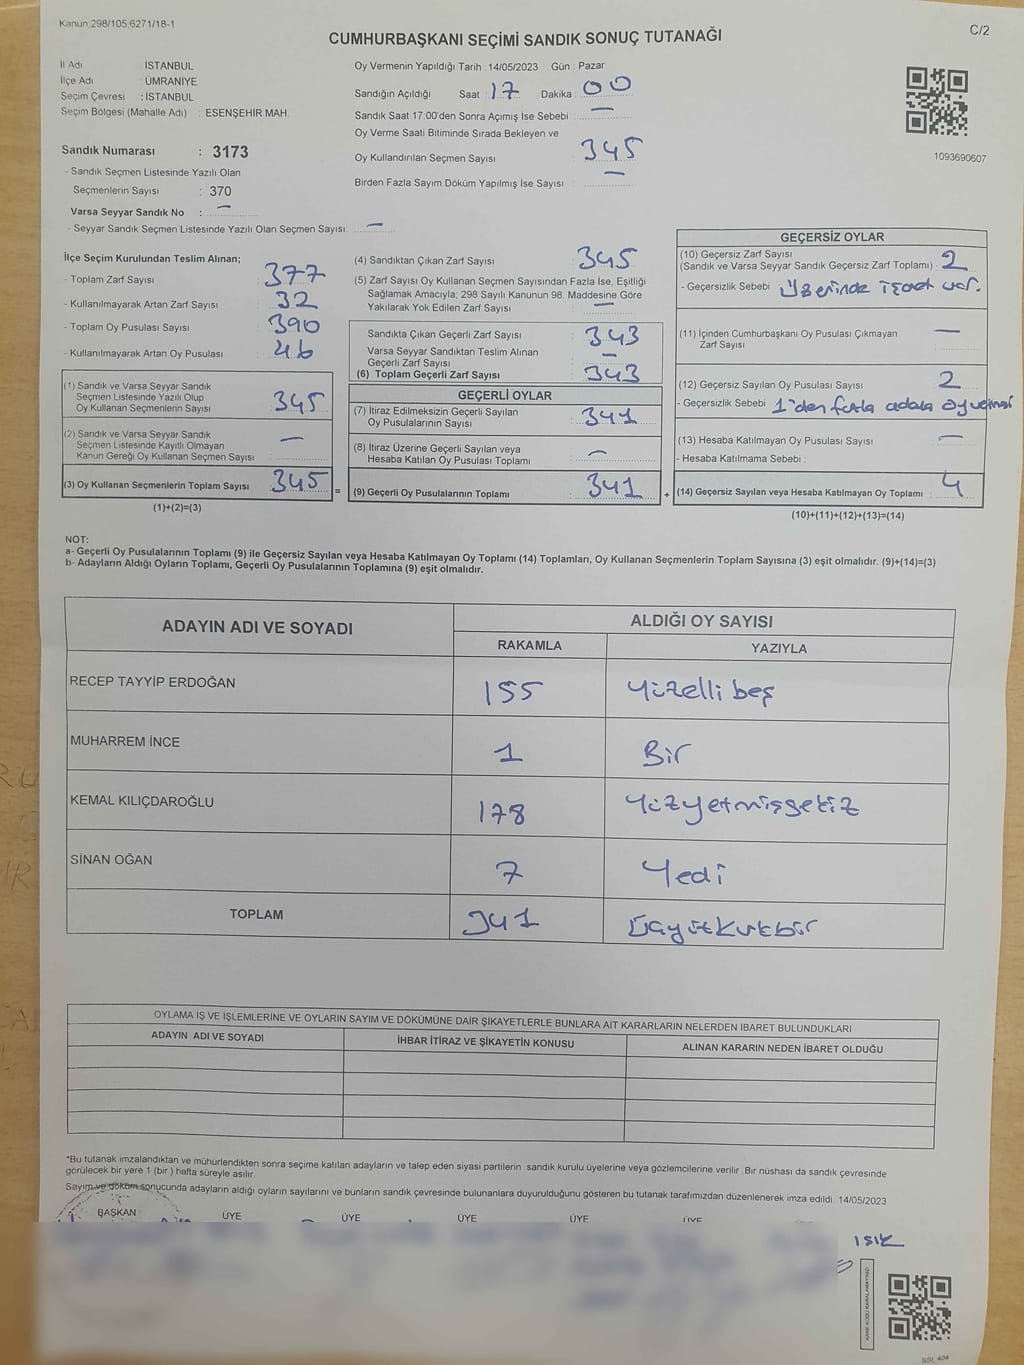 Kanun:298/105;6271/18-1
C/2
CUMHURBAŞKANI SEÇİMİ SANDIK SONUÇ TUTANAĞI
İl Adı İSTANBUL
İlçe Adı : ÜMRANİYE
Seçim Çevresi : İSTANBUL
Seçim Bölgesi (Mahalle Adı) : ESENŞEHİR MAH.
Sandık Numarası : 3173
- Sandık Seçmen Listesinde Yazılı Olan
Seçmenlerin Sayısı : 370
Varsa Seyyar Sandık No : —
- Seyyar Sandık Seçmen Listesinde Yazılı Olan Seçmen Sayısı: —
Oy Vermenin Yapıldığı Tarih : 14/05/2023 Gün : Pazar
Sandığın Açıldığı Saat : 17 Dakika : 00
Sandık Saat 17:00'den Sonra Açımış İse Sebebi : —
Oy Verme Saati Bitiminde Sırada Bekleyen ve
Oy Kullandırılan Seçmen Sayısı : 345
Birden Fazla Sayım Döküm Yapılmış İse Sayısı : —
1093690607
İlçe Seçim Kurulundan Teslim Alınan;
- Toplam Zarf Sayısı : 377
- Kullanılmayarak Artan Zarf Sayısı : 32
- Toplam Oy Pusulası Sayısı : 390
- Kullanılmayarak Artan Oy Pusulası : 46
(1) Sandık ve Varsa Seyyar Sandık
Seçmen Listesinde Yazılı Olup
Oy Kullanan Seçmenlerin Sayısı : 345
(2) Sandık ve Varsa Seyyar Sandık
Seçmen Listesinde Kayıtlı Olmayan
Kanun Gereği Oy Kullanan Seçmen Sayısı : —
(3) Oy Kullanan Seçmenlerin Toplam Sayısı : 345 =
(1)+(2)=(3)
(4) Sandıktan Çıkan Zarf Sayısı : 345
(5) Zarf Sayısı Oy Kullanan Seçmen Sayısından Fazla İse, Eşitliği
Sağlamak Amacıyla; 298 Sayılı Kanunun 98. Maddesine Göre
Yakılarak Yok Edilen Zarf Sayısı : —
Sandıkta Çıkan Geçerli Zarf Sayısı : 343
Varsa Seyyar Sandıktan Teslim Alınan
Geçerli Zarf Sayısı : —
(6) Toplam Geçerli Zarf Sayısı : 343
GEÇERLİ OYLAR
(7) İtiraz Edilmeksizin Geçerli Sayılan
Oy Pusulalarının Sayısı : 341
(8) İtiraz Üzerine Geçerli Sayılan veya
Hesaba Katılan Oy Pusulası Toplamı : —
(9) Geçerli Oy Pusulalarının Toplamı : 341 +
GEÇERSİZ OYLAR
(10) Geçersiz Zarf Sayısı
(Sandık ve Varsa Seyyar Sandık Geçersiz Zarf Toplamı) : 2
- Geçersizlik Sebebi : Üzerinde işaret var.
(11) İçinden Cumhurbaşkanı Oy Pusulası Çıkmayan —
Zarf Sayısı
(12) Geçersiz Sayılan Oy Pusulası Sayısı : 2
- Geçersizlik Sebebi : 1'den fazla adaya oy
(13) Hesaba Katılmayan Oy Pusulası Sayısı : —
- Hesaba Katılmama Sebebi :
(14) Geçersiz Sayılan veya Hesaba Katılmayan Oy Toplamı : 4
(10)+(11)+(12)+(13)=(14)
NOT:
a- Geçerli Oy Pusulalarının Toplamı (9) ile Geçersiz Sayılan veya Hesaba Katılmayan Oy Toplamı (14) Toplamları, Oy Kullanan Seçmenlerin Toplam Sayısına (3) eşit olmalıdır. (9)+(14)=(3)
b- Adayların Aldığı Oyların Toplamı, Geçerli Oy Pusulalarının Toplamına (9) eşit olmalıdır.
ADAYIN ADI VE SOYADI ALDIĞI OY SAYISI
RAKAMLA YAZIYLA
RECEP TAYYİP ERDOĞAN 155 Yüzelli beş
MUHARREM İNCE 1 Bir
KEMAL KILIÇDAROĞLU 178 Yüzyetmişsekiz
SİNAN OĞAN 7 Yedi
TOPLAM 341 Üçyüzkırkbir
OYLAMA İŞ VE İŞLEMLERİNE VE OYLARIN SAYIM VE DÖKÜMÜNE DAİR ŞİKAYETLERLE BUNLARA AİT KARARLARIN NELERDEN İBARET BULUNDUKLARI
ADAYIN ADI VE SOYADI İHBAR İTİRAZ VE ŞİKAYETİN KONUSU ALINAN KARARIN NEDEN İBARET OLDUĞU
*Bu tutanak imzalandıktan ve mühürlendikten sonra seçime katılan adayların ve talep eden siyasi partilerin sandık kurulu üyelerine veya gözlemcilerine verilir. Bir nüshası da sandık çevresinde
görülecek bir yere 1 (bir ) hafta süreyle asılır.
Sayım ve döküm sonucunda adayların aldığı oyların sayılarını ve bunların sandık çevresinde bulunanlara duyurulduğunu gösteren bu tutanak tarafımızdan düzenlenerek imza edildi. 14/05/2023
BAŞKAN ÜYE ÜYE ÜYE ÜYE ÜYE
IŞIK